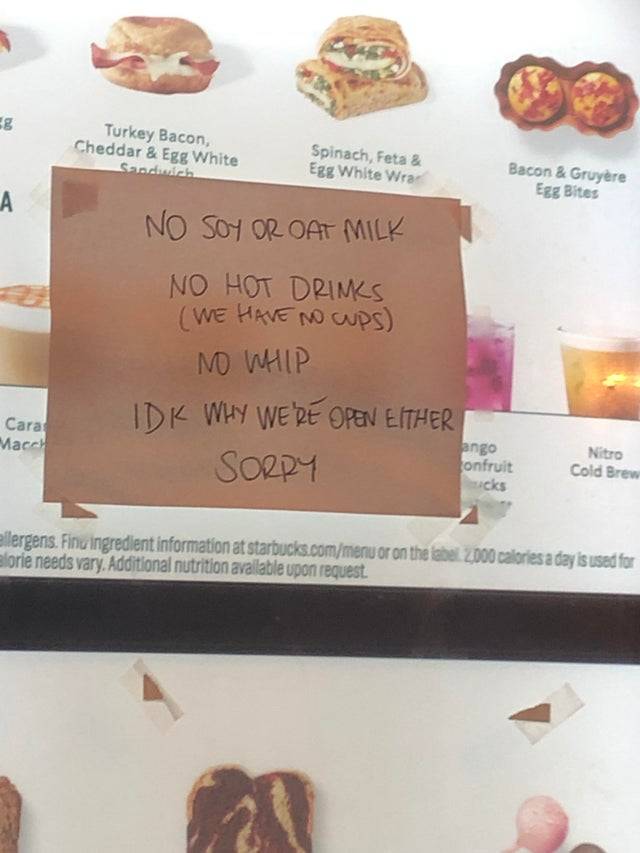 Turkey Bacon,
Cheddar & Egg White
Sandwich
Spinach, Feta &
Egg White
Bacon & Gruyère
Egg Bites
A
NO SOY OR OAT MILK
NO HOT DRINKS
(WE HAVE NO CUPS)
NO WHIP
IDK WHY WE'RE OPEN EITHER
SORRY
Nitro
Cold Brew
allergens. Find ingredient information at starbucks.com/menu or on the label. 2,000 calories a day is used for
calorie needs vary. Additional nutrition available upon request.